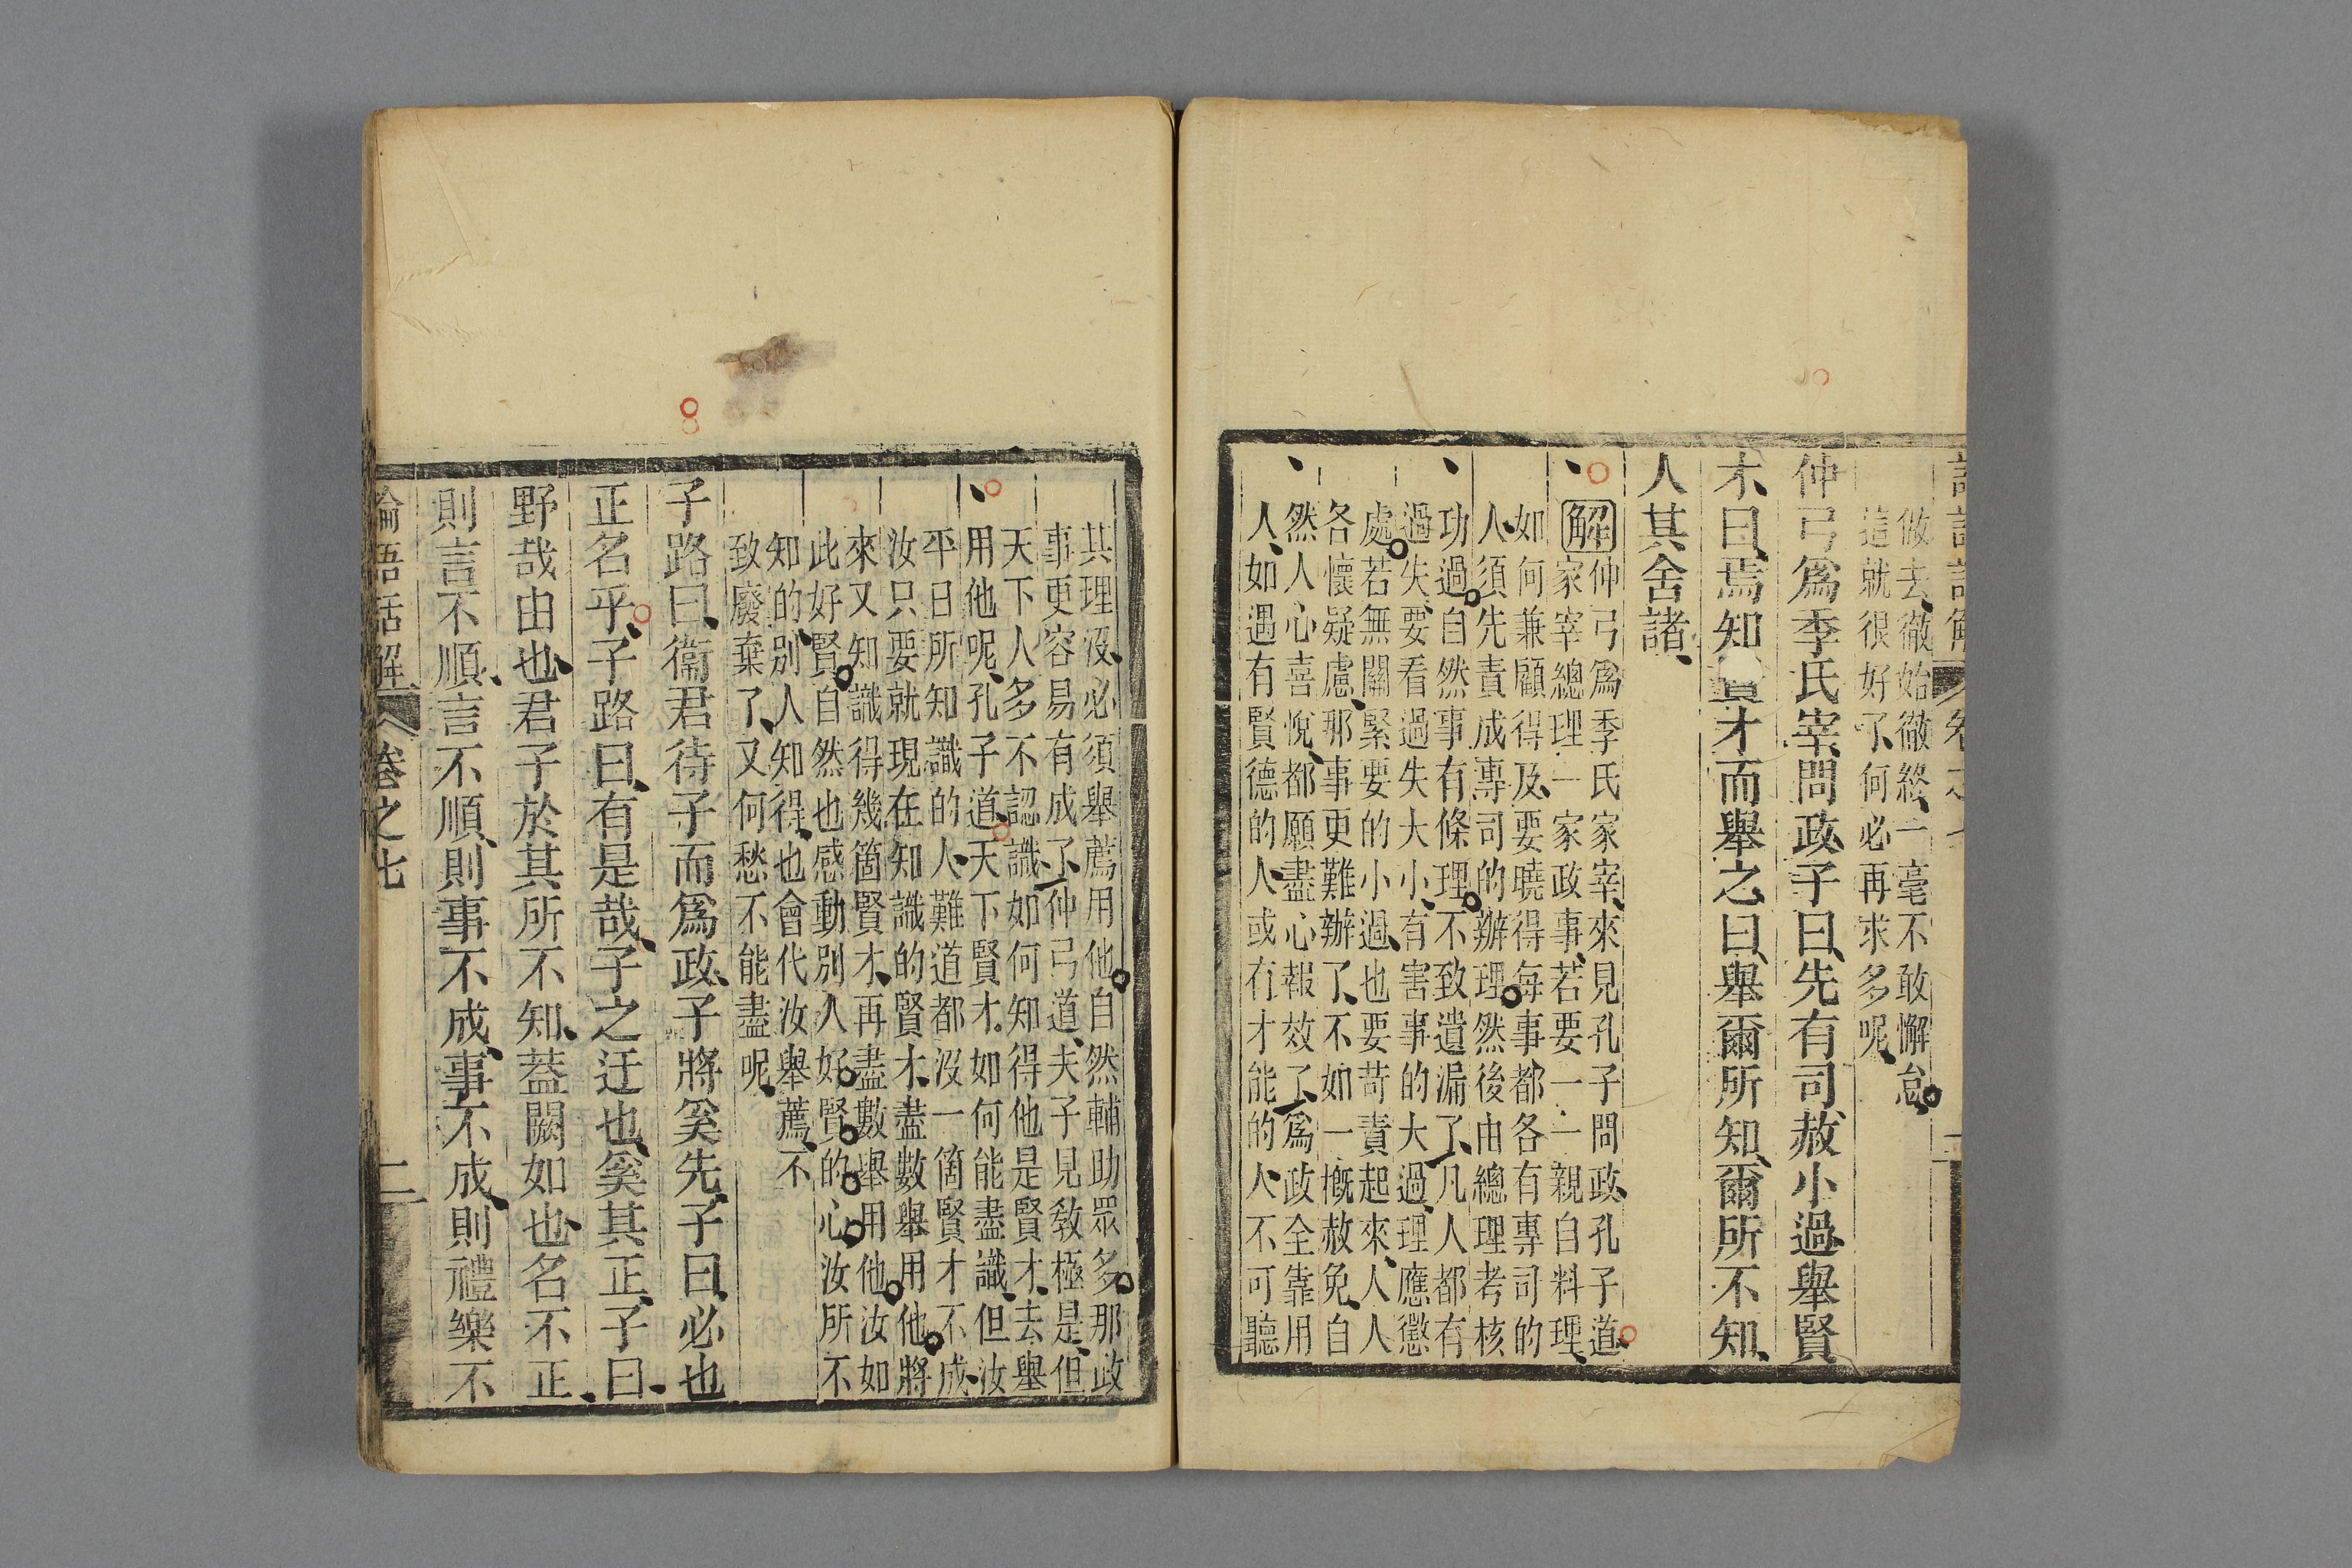 倣去徹始徹終一毫不敢懈怠
這就很好了何必再求多呢
仲弓爲季氏宰問政子曰先有司赦小過舉賢
才曰焉知賢才而舉之曰舉爾所知爾所不知
人其舍諸
解
仲弓爲季氏家宰來見孔子問政孔子道
家宰總理一家政事若要一一親自料理
如何兼顧得及要曉得每事都各有專司的
人須先責成專司的辦理然後由總理考核
功過自然事有條理不致遺漏了凡人都有
過失要看過失大小有害事的大過理應懲
處若無關緊要的小過也要苛責起來人人
各懷疑慮那事更難辦了不如一槪赦免自
然人心喜悅都願盡心報效了爲政全靠用
人如遇有賢德的人或有才能的人不可聽
其理沒必須舉薦用他自然輔助眾多那政
事更容易有成了仲弓道夫子見敎極是但
天下人多不認識如何知得他是賢才去舉
用他呢孔子道天下賢才如何能盡識但汝
平日所知識的人難道都沒一箇賢才不成
汝只要就現在知識的賢才盡數舉用他將
來又知識得幾箇賢才再盡數舉用他汝如
此好賢自然也感動別人好賢的心汝所不
知的別人知得也會代汝舉薦不
致廢棄了又何愁不能盡呢
子路曰衞君待子而爲政子將奚先子曰必也
正名乎子路曰有是哉子之迂也奚其正子曰
野哉由也君子於其所不知蓋闕如也名不正
則言不順言不順則事不成事不成則禮樂不
論語話解 卷之七 二